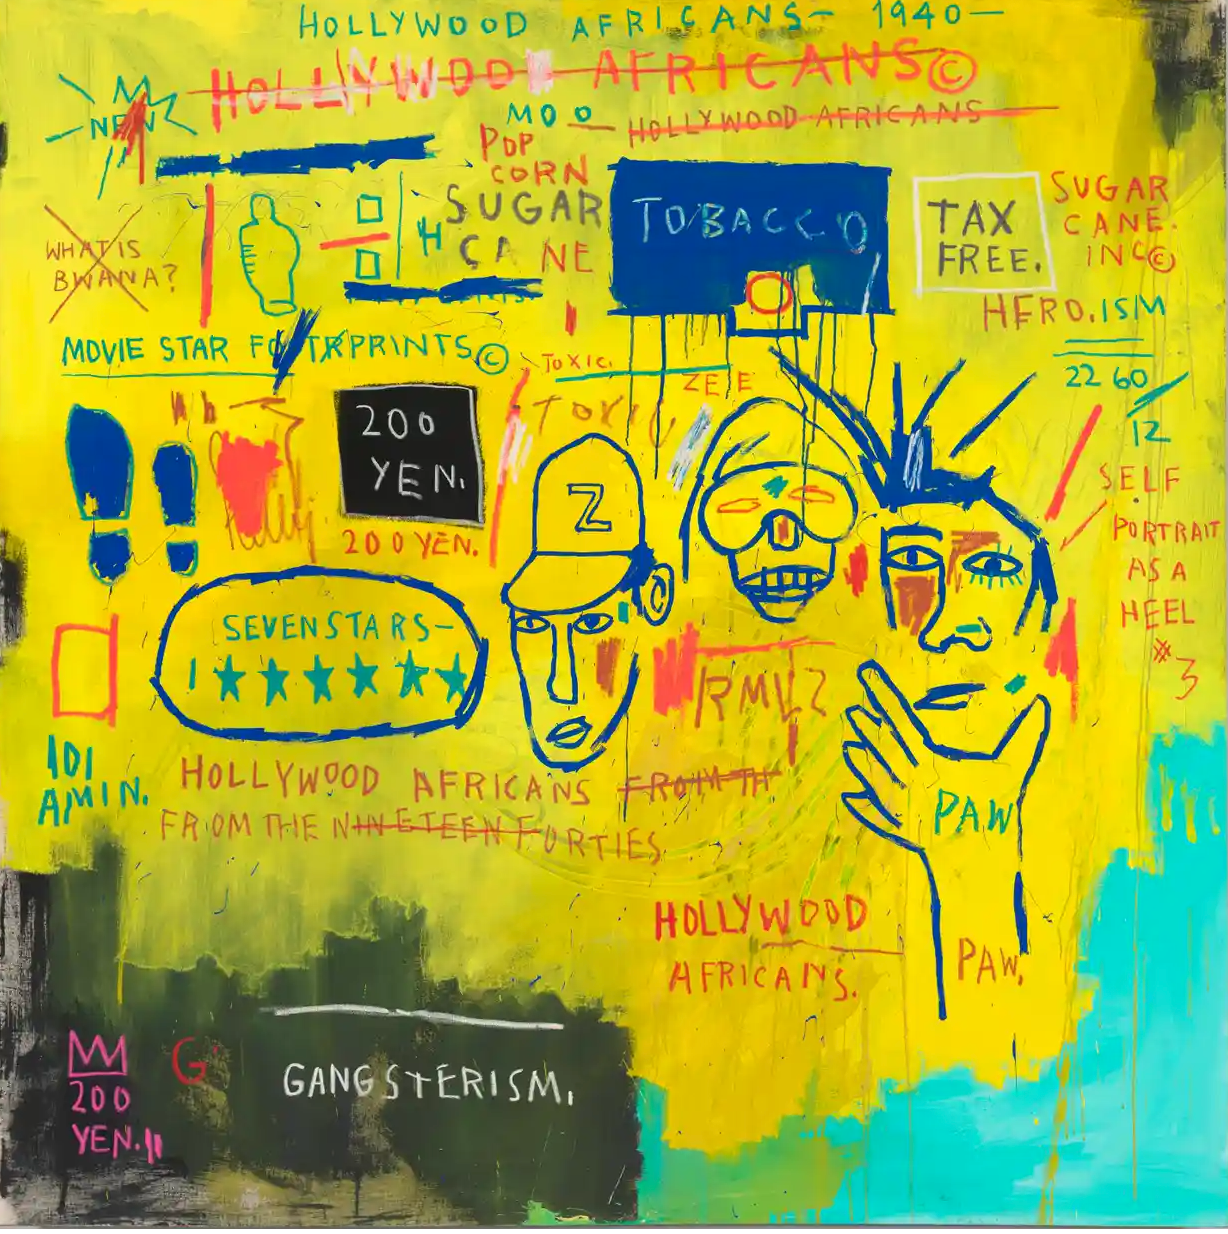 HOLLYWOOD AFRICANS- 1940-
HOLLYWOOD AFRICANS©
NEW
MOO
HOLLYWOOD AFRICANS
POP
CORN
SUGAR
CANE
H
TOBACCO
TAX
FREE.
SUGAR
CANE.
INC©
HERO.ISM
WHAT IS
BWANA?
MOVIE STAR FOOTPRINTS©
TOXIC.
ZEE
TOXIC
2260
12
SELF
PORTRAIT
AS A
HEEL
3
200
YEN.
200 YEN.
Z
SEVEN STARS-
RMLZ
IDI
AMIN.
HOLLYWOOD AFRICANS FROM TH
FROM THE NINETEEN FORTIES
PAW
HOLLYWOOD
AFRICANS.
PAW.
G
200
YEN.
GANGSTERISM.